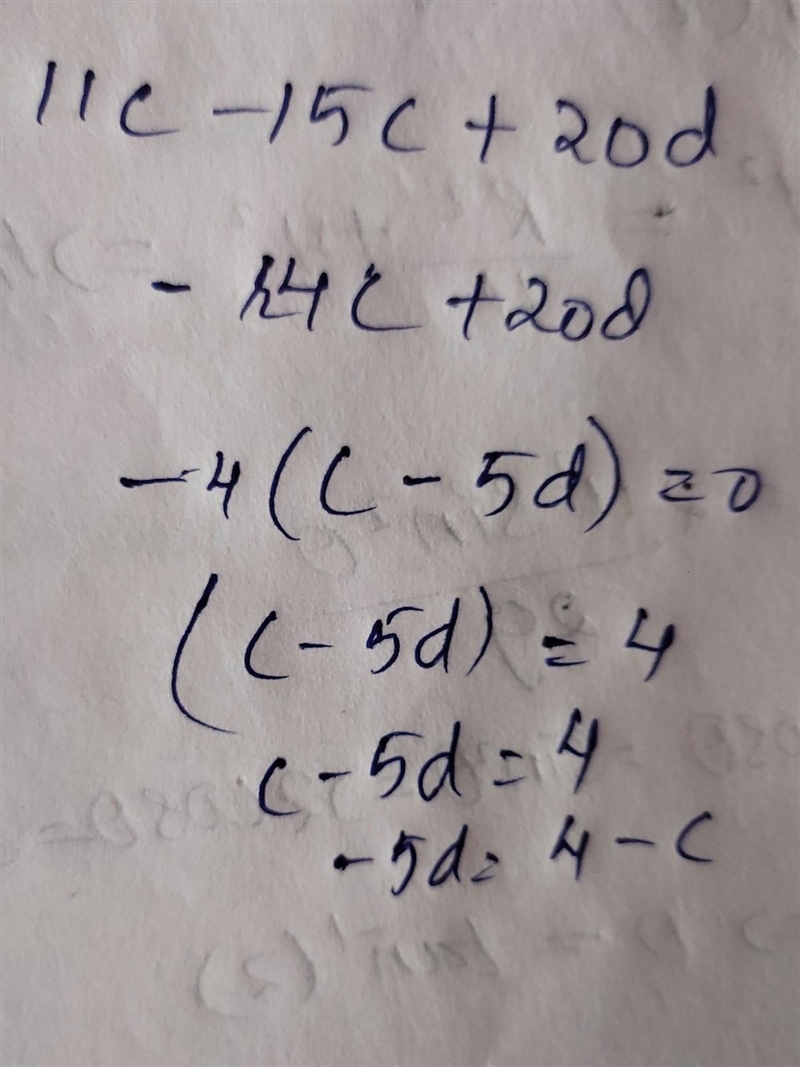 11c - 15c + 20d
- 4c + 20d
- 4 (c - 5d) = 0
(c - 5d) = 4
c - 5d = 4
- 5d = 4 - c